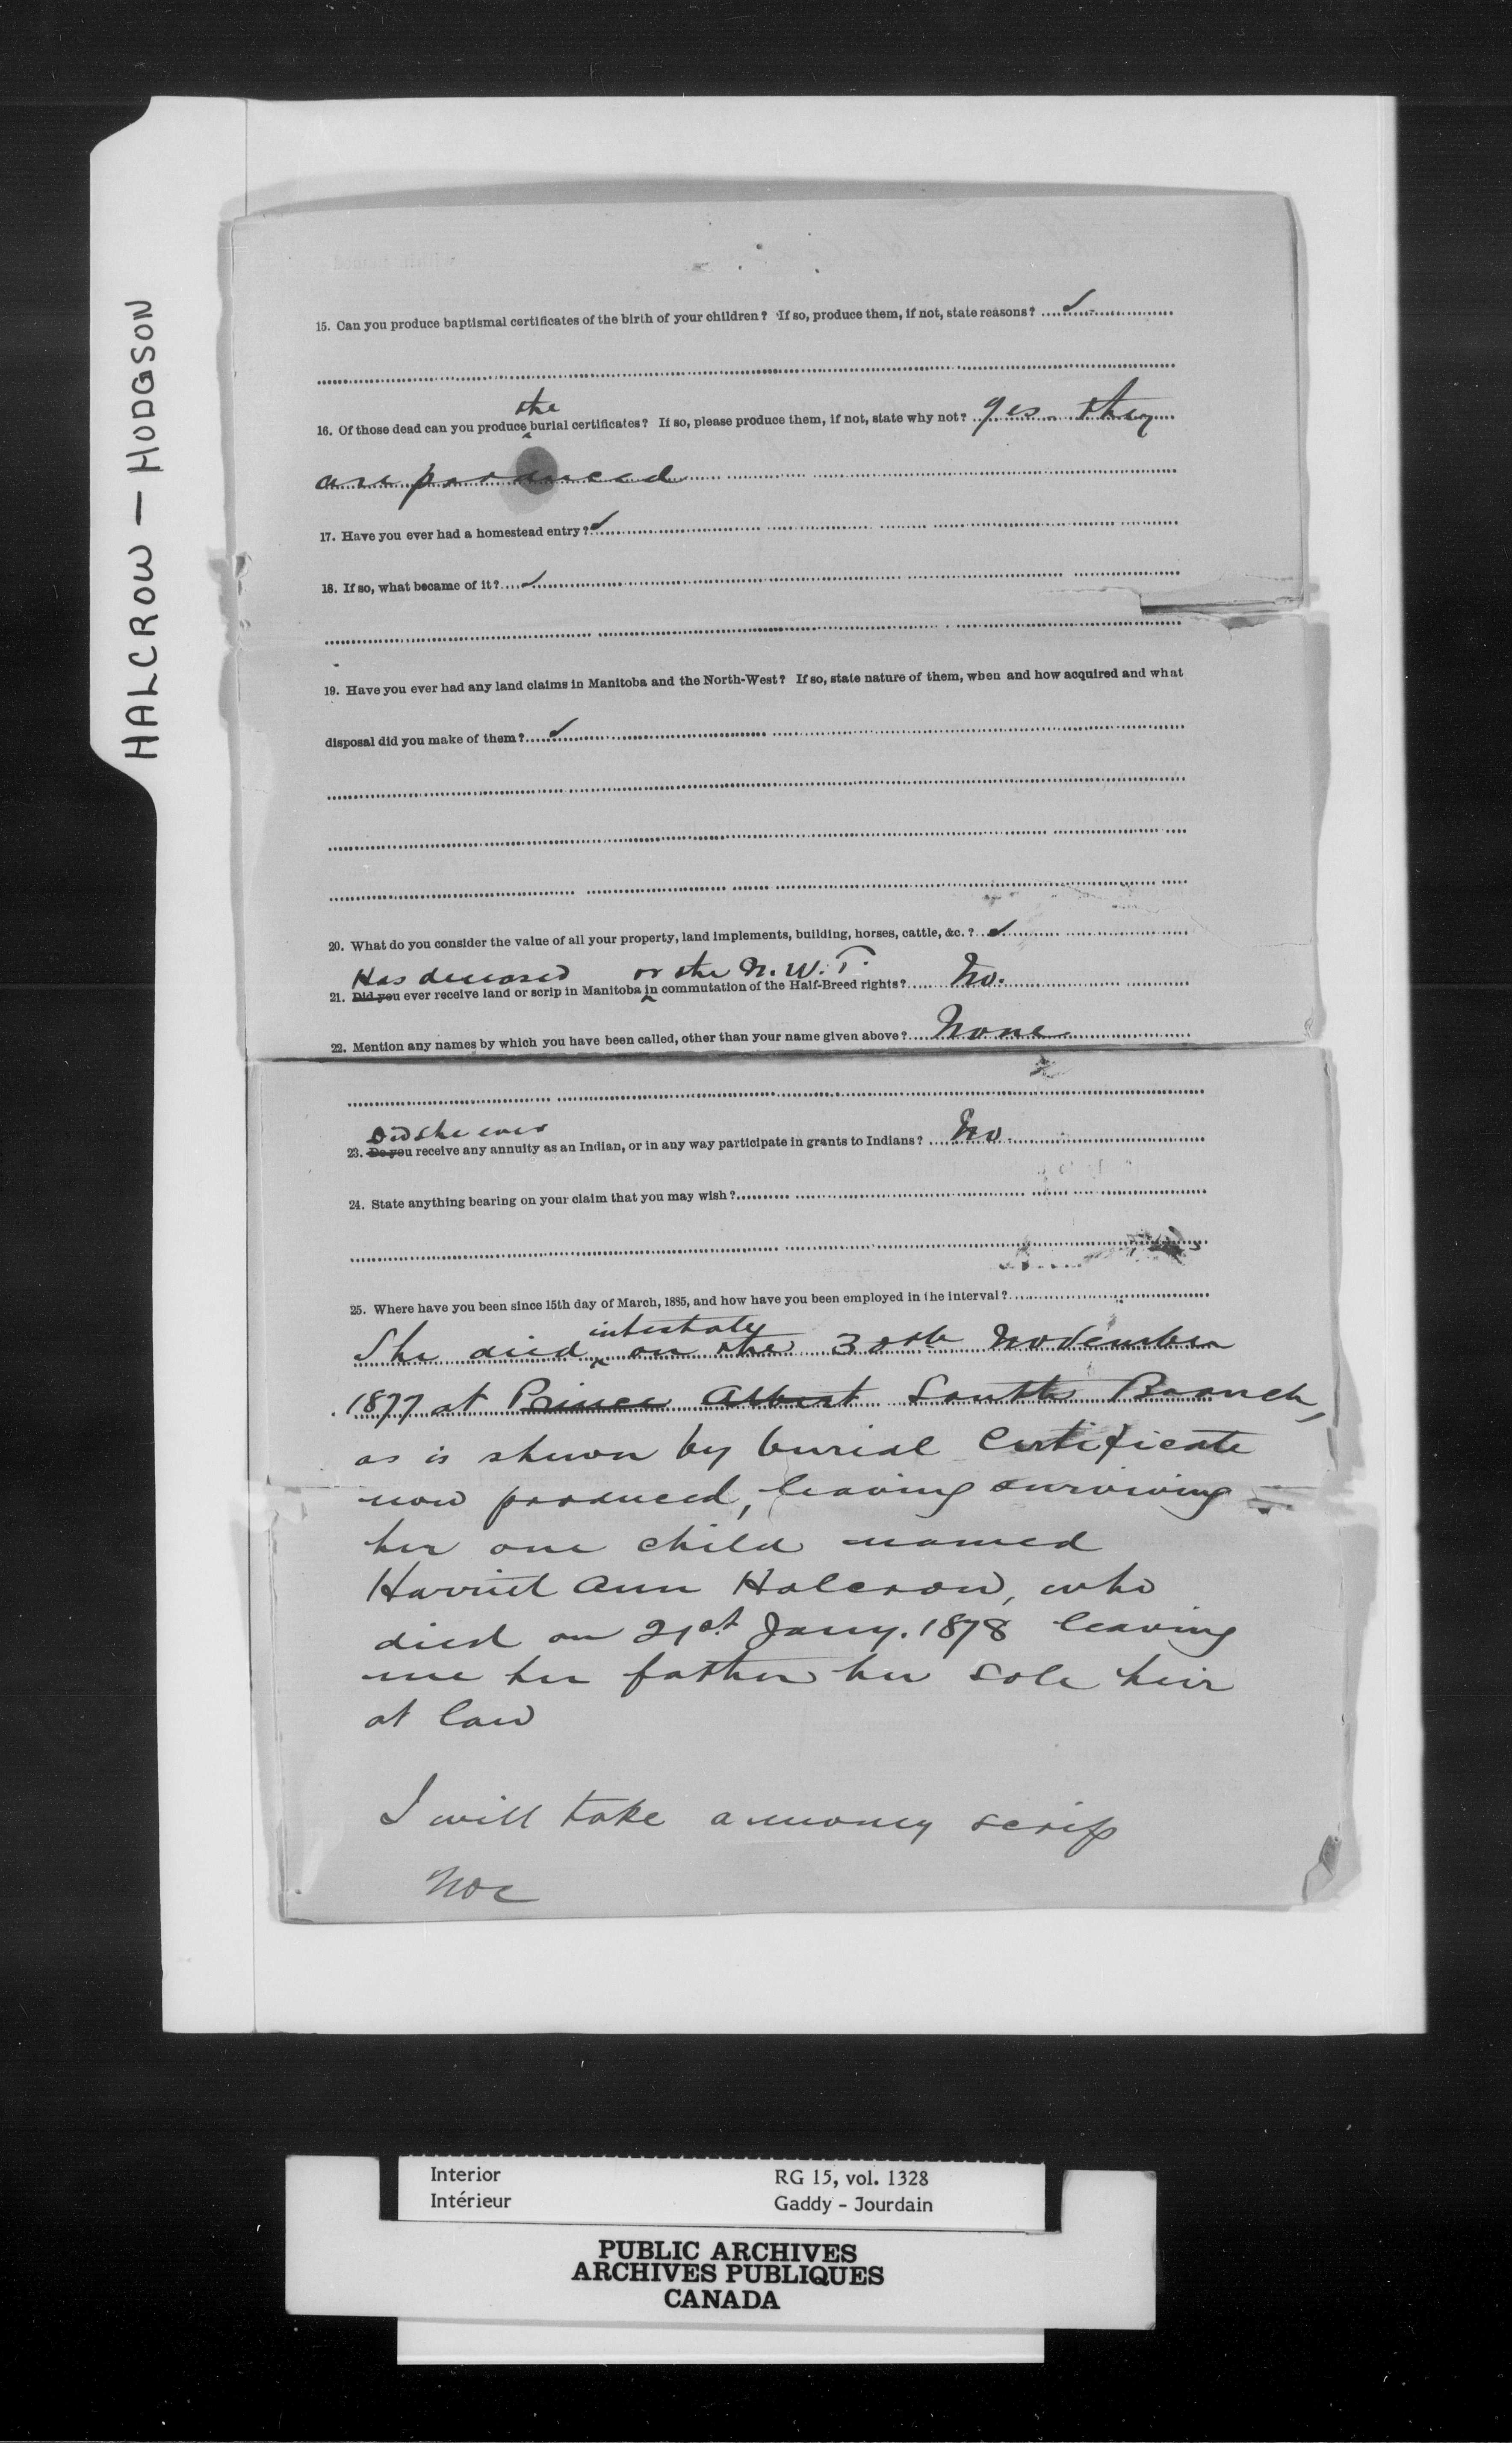 HALCROW — HODGSON
15. Can you produce baptismal certificates of the birth of your children? If so, produce them, if not, state reasons?
the
16. Of those dead can you produce burial certificates? If so, please produce them, if not, state why not? Yes they
are produced
17. Have you ever had a homestead entry?
18. If so, what became of it?
19. Have you ever had any land claims in Manitoba and the North-West? If so, state nature of them, when and how acquired and what
disposal did you make of them?
20. What do you consider the value of all your property, land implements, building, horses, cattle, &c.?
Has deceased or the N. W. T.
21. Did you ever receive land or scrip in Manitoba in commutation of the Half-Breed rights? No.
22. Mention any names by which you have been called, other than your name given above? None
Did she ever
23. Do you receive any annuity as an Indian, or in any way participate in grants to Indians? No.
24. State anything bearing on your claim that you may wish?
25. Where have you been since 15th day of March, 1885, and how have you been employed in the interval?
intestate
She died on the 30th November
1877 at Prince Albert South Branch,
as is shewn by burial Certificate
now produced, leaving surviving
her one child named
Harriet Ann Halcrow, who
died on 21st Jany. 1878 leaving
me her father her sole heir
at law
I will take a money scrip
Interior RG 15, vol. 1328
Intérieur Gaddy - Jourdain
PUBLIC ARCHIVES
ARCHIVES PUBLIQUES
CANADA